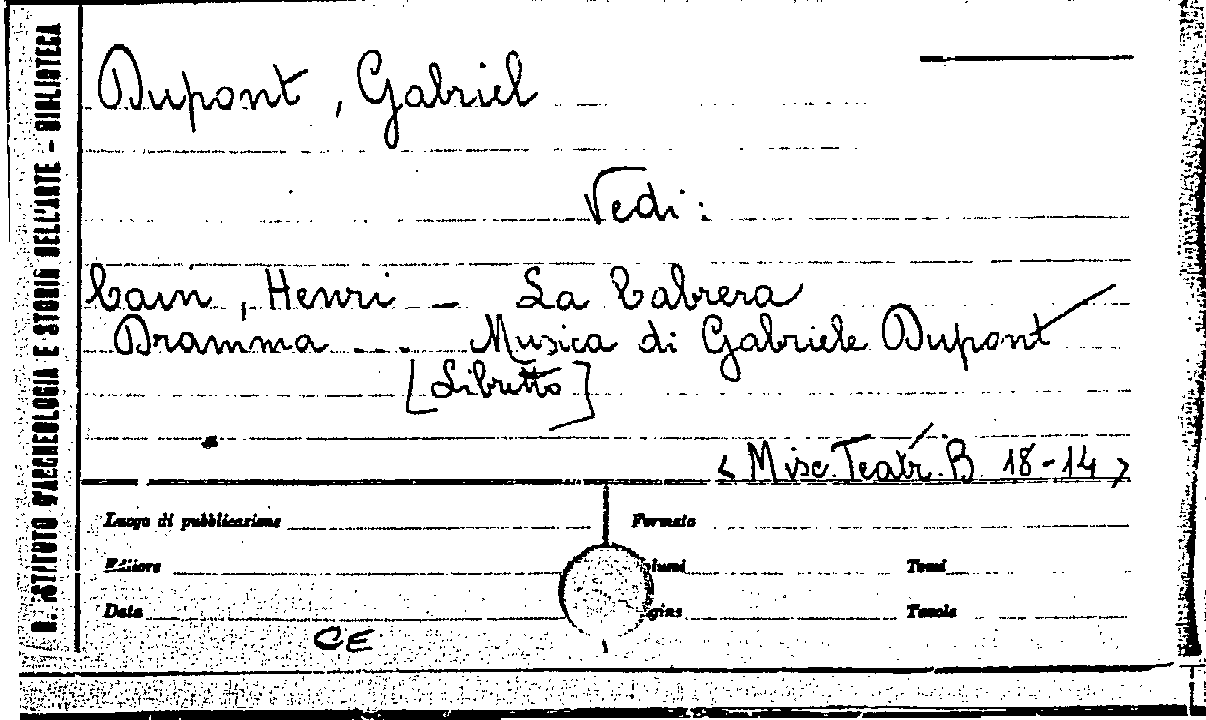 R. ISTITUTO D'ARCHEOLOGIA E STORIA DELL'ARTE - BIBLIOTECA
Dupont, Gabriel
Vedi:
Cain, Henri - La Cabrera
Dramma ... Musica di Gabriele Dupont
[Libretto]
< Misc. Teatr. B 18-14 >
Luogo di pubblicazione Formato
Editore olumi Tomi
Data agine Tavole
CE